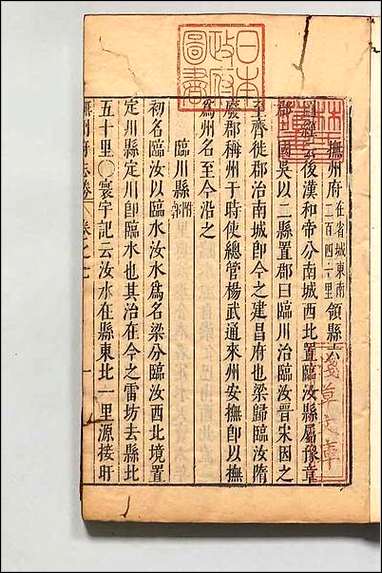 日本
政府
圖書
撫州府在省城東南二百四十里領縣六
後漢和帝分南城西北置臨汝縣屬豫章
郡國吳以二縣置郡曰臨川治臨汝晉宋因之
至齊徙郡治南城卽今之建昌府也梁歸臨汝隋
廢郡稱州于時使總管楊武通來州安撫卽以撫
爲州名至今沿之
臨川縣附郭
初名臨汝以臨水汝水爲名梁分臨汝西北境置
定川縣定川卽臨水也其治在今之雷坊去縣北
五十里○寰宇記云汝水在縣東北一里源接盱
撫州府志卷
卷之
一
淺草文庫